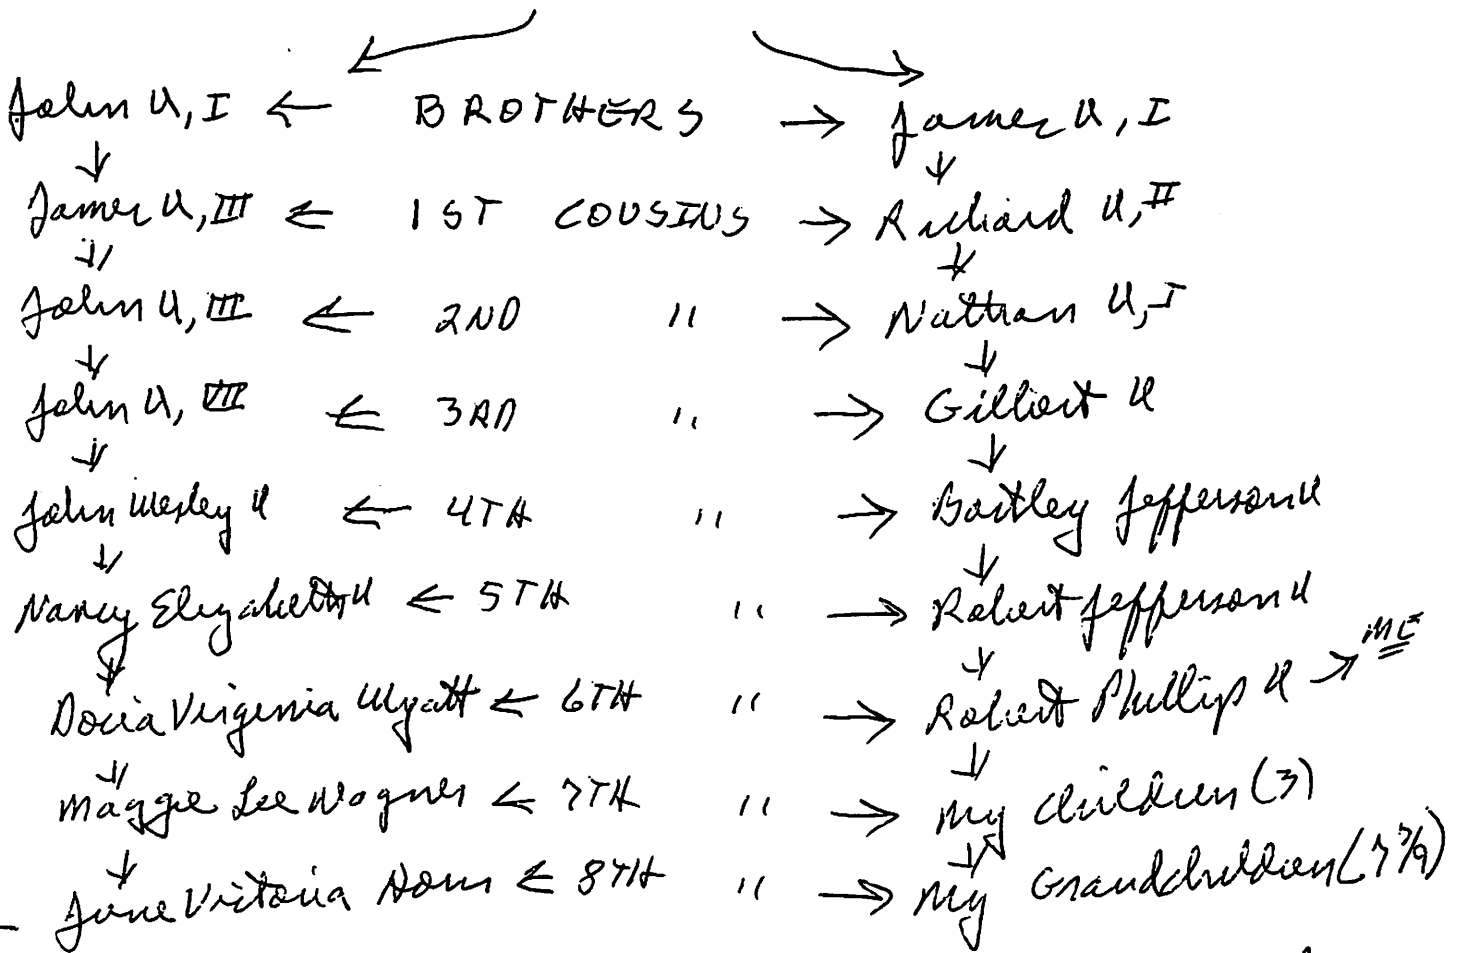 John U, I ← BROTHERS → James U, I
James U, III ← 1ST COUSINS → Richard U, II
John U, III ← 2ND " → Nathan U, I
John U, VII ← 3RD " → Gilbert U
John Wesley U ← 4TH " → Bartley Jefferson U
Nancy Elizabeth U ← 5TH " → Robert Jefferson U
Docia Virginia Wyatt ← 6TH " → Robert Phillip U → ME
Maggie Lee Wagner ← 7TH " → My children (3)
June Victoria ← 8TH " → My Grandchildren